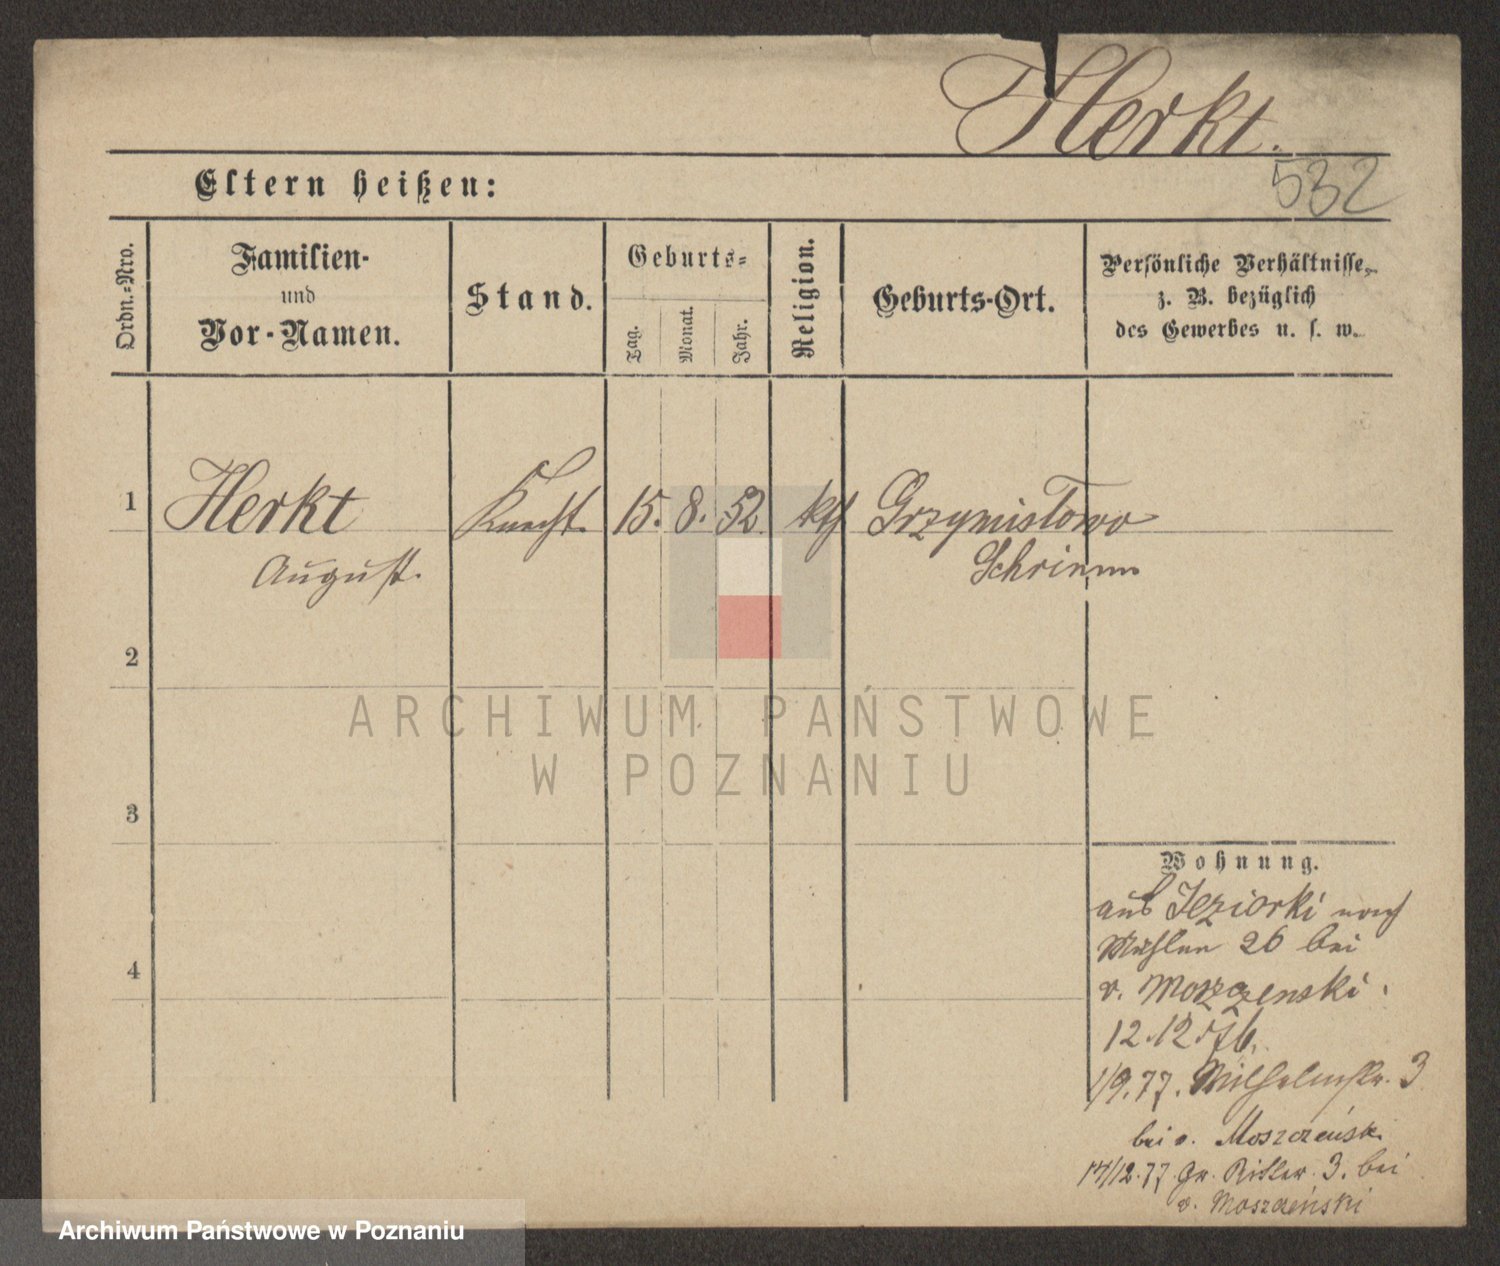 Herkt.
532
Eltern heißen:
Ordn.-Nro.
Familien-
und
Vor-Namen.
Stand.
Geburts-
Tag.
Monat.
Jahr.
Religion.
Geburts-Ort.
Persönliche Verhältnisse,
z. B. bezüglich
des Gewerbes u. s. w.
1 Herkt Knecht 15. 8. 52. kth Grzymisławo
August. Schrimm
2
ARCHIWUM PAŃSTWOWE
W POZNANIU
3
Wohnung.
aus Jeziorki nach
Mühlen 26 bei
4
v. Moszzenski.
12.12.76.
1/9.77. Wilhelmstr. 3
bei v. Moszczeński
17/12.77. Gr. Ritter. 3. bei
v. Moszczeński
Archiwum Państwowe w Poznaniu